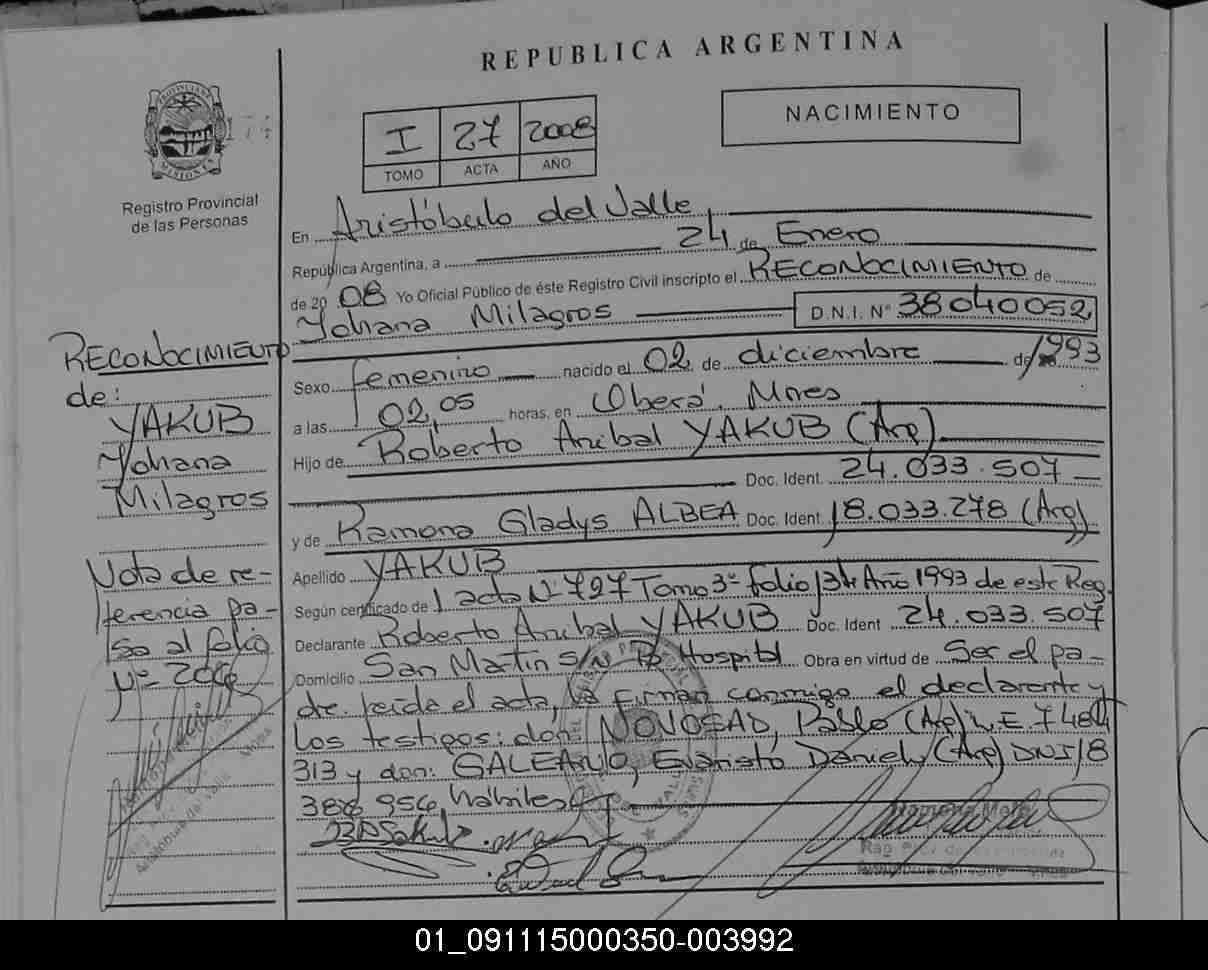 REPUBLICA ARGENTINA
PROVINCIA DE
MISIONES
174
Registro Provincial
de las Personas
I 27 2008
TOMO ACTA AÑO
NACIMIENTO
En Aristóbulo del Valle,
República Argentina, a 24 de Enero
de 20 08 Yo Oficial Público de éste Registro Civil inscripto el RECONOCIMIENTO de
Yohana Milagros D.N.I. Nº 38040052
Sexo femenino nacido el 02 de diciembre de 1993
a las 02,05 horas, en Oberá, Mnes
Hijo de Roberto Anibal YAKUB (Arg)
Doc. Ident. 24.033.507
y de Ramona Gladys ALBEA Doc. Ident 18.033.278 (Arg)
Apellido YAKUB
Según certificado de 1 acta Nº 727 Tomo 3º folio 134 Año 1993 de este Reg.
Declarante Roberto Anibal YAKUB Doc. Ident 24.033.507
Domicilio San Martin S/N Bº Hospital Obra en virtud de Ser el pa-
dre. Leida el acta, la firman conmigo el declarante y
los testigos: don: NOVOSAD, Pablo (Arg) L.E. 7484
313 y don: GALEANO, Evaristo Daniel, (Arg) DNI 18
386 956, hábiles
RECONOCIMIENTO
de:
YAKUB
Yohana
Milagros
Nota de re-
ferencia pa-
sa al folio
Nº 200
01_091115000350-003992